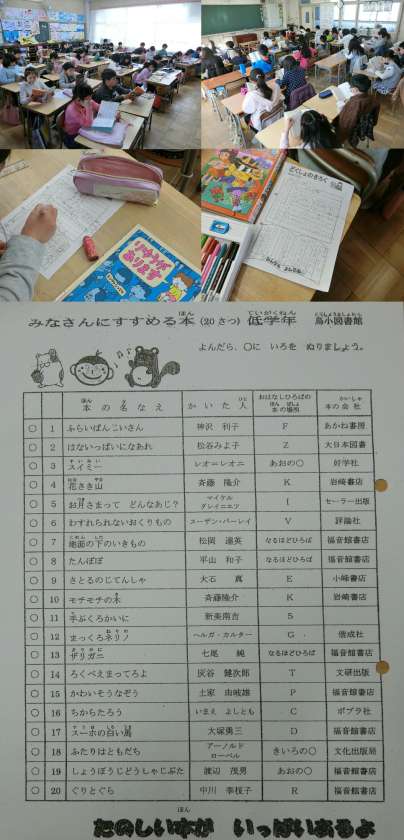 りゆうが
あります
どくしょのきろく
みなさんにすすめる本(20さつ) 低学年 鳥小図書館
よんだら、〇に いろを ぬりましょう。
本の名なえ かいた人 おはなしひろばの本の場所 本の会社
〇 1 ふらいぱんじいさん 神沢 利子 F あかね書房
〇 2 はないっぱいになあれ 松谷みよ子 Z 大日本図書
〇 3 スイミー レオ=レオニ あおの〇 好学社
〇 4 花さき山 斉藤 隆介 K 岩崎書店
〇 5 お月さまって どんなあじ? マイケル グレイニエツ I セーラー出版
〇 6 わすれられないおくりもの スーザン・バーレイ V 評論社
〇 7 絶面の下のいきもの 松岡 達英 なるほどひろば 福音館書店
〇 8 たんぽぽ 平山 和子 なるほどひろば 福音館書店
〇 9 さとるのじてんしゃ 大石 真 E 小峰書店
〇 10 モチモチの木 斉藤隆介 K 岩崎書店
〇 11 手ぶくろかいに 新美南吉 5
〇 12 まっくろネリノ ヘルガ・ガルター G 偕成社
〇 13 ザリガニ 七尾 純 なるほどひろば 福音館書店
〇 14 ろくべえまってろよ 灰谷 健次郎 T 文研出版
〇 15 かわいそうなぞう 土家 由岐雄 P 福音館書店
〇 16 ちからたろう いまえ よしとも C ポプラ社
〇 17 スーホの白い馬 大塚勇三 D 福音館書店
〇 18 ふたりはともだち アーノルド ローベル きいろの〇 文化出版局
〇 19 しょうぼうじどうしゃじぷた 渡辺 茂男 あおの〇 福音館書店
〇 20 ぐりとぐら 中川 李枝子 R 福音館書店
たのしい本が いっぱいあるよ